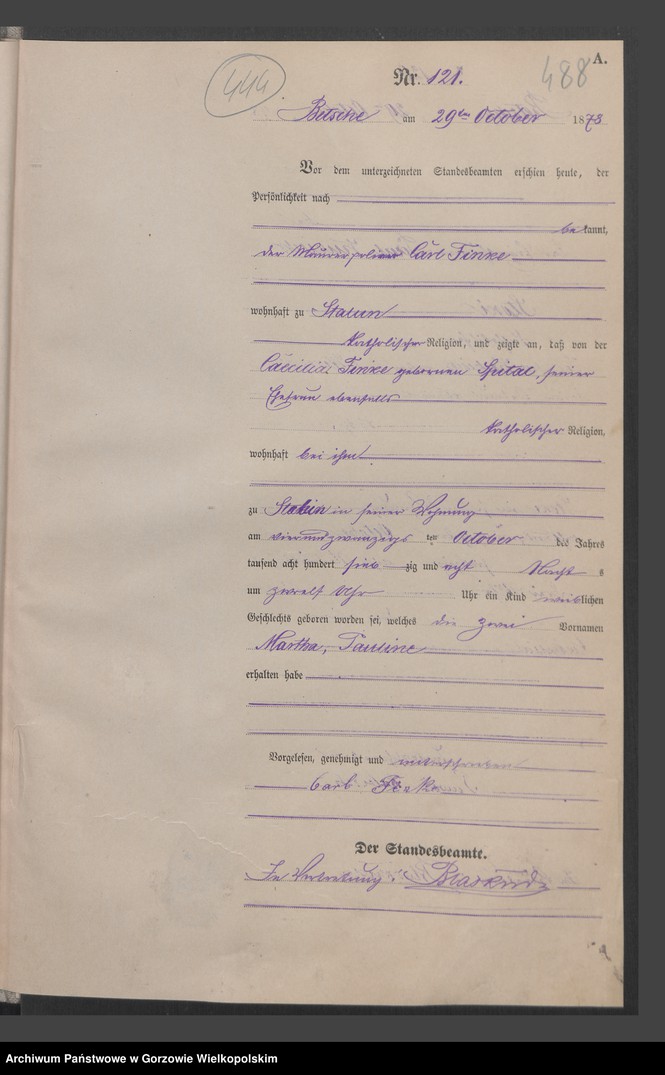 A.
444
488
Nr. 121.
Betsche am 29ten October 1878
Vor dem unterzeichneten Standesbeamten erschien heute, der
Persönlichkeit nach
bekannt,
der Maurerpolier Carl Finke
wohnhaft zu Stalun
katholischer Religion, und zeigte an, daß von der
Cäcilia Finke gebornen Spital, seiner
Ehefrau ebenfalls
katholischer Religion,
wohnhaft bei ihm
zu Stalun in seiner Wohnung
am vierundzwanzigs ten October des Jahres
tausend acht hundert siebzig und acht Nachts
um zwoelf Uhr Uhr ein Kind weiblichen
Geschlechts geboren worden sei, welches die zwei Vornamen
Martha, Pauline
erhalten habe
Vorgelesen, genehmigt und unterschrieben
Carl Finke
Der Standesbeamte.
In Vertretung:
Archiwum Państwowe w Gorzowie Wielkopolskim